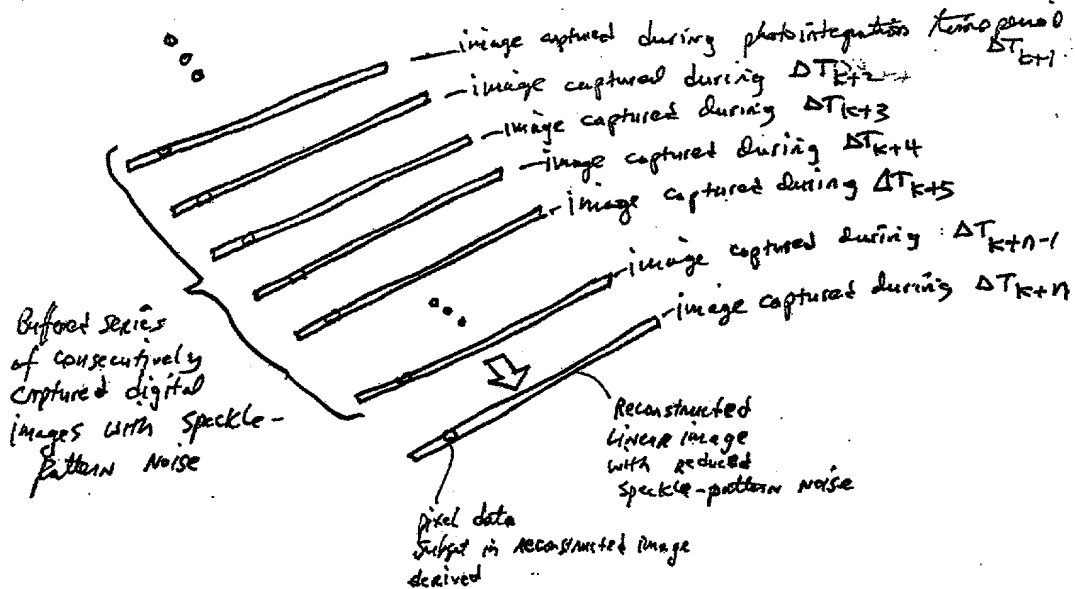 image captured during photointegration time period
ΔTk+1
image captured during ΔTk+2
image captured during ΔTk+3
image captured during ΔTk+4
image captured during ΔTk+5
image captured during ΔTk+n-1
image captured during ΔTk+n
Buffered series
of consecutively
captured digital
images with speckle-
pattern noise
Reconstructed
Linear image
with reduced
Speckle-pattern noise
pixel data
subset in reconstructed image
derived